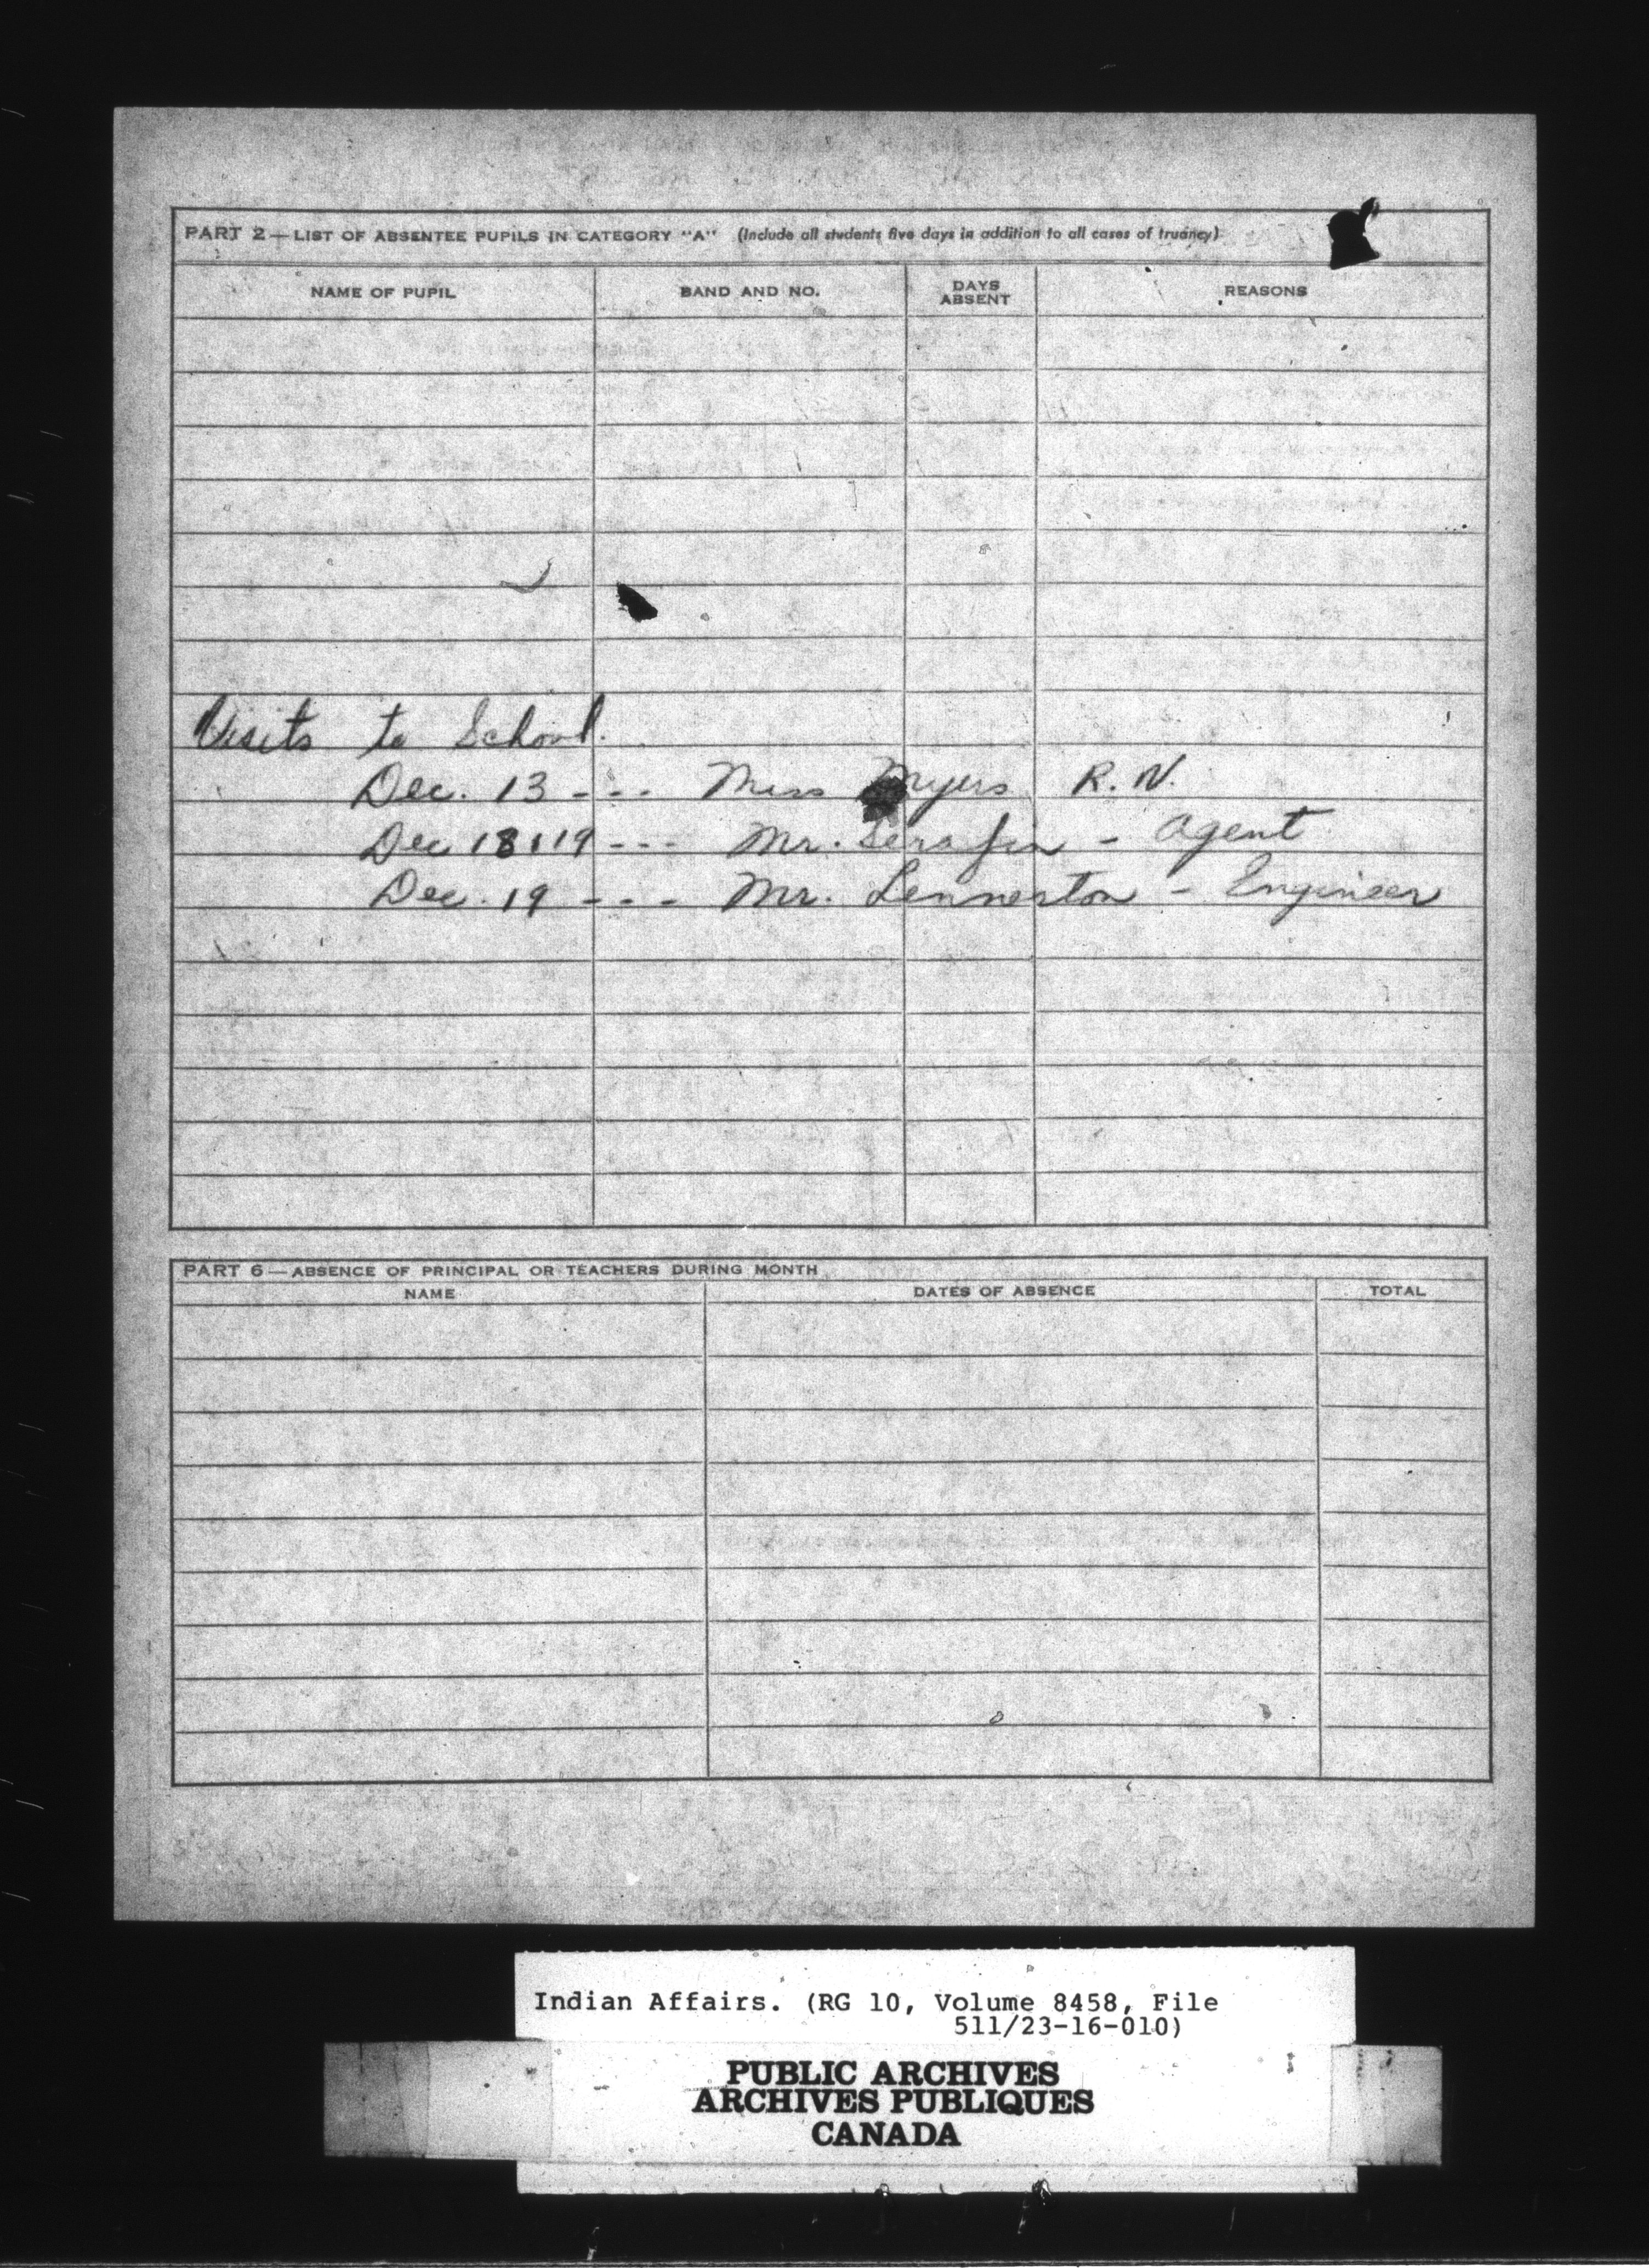 PART 2—LIST OF ABSENTEE PUPILS IN CATEGORY "A" (Include all students five days in addition to all cases of truancy)
NAME OF PUPIL BAND AND NO. DAYS ABSENT REASONS
Visits to School.
Dec. 13 - - - Miss Myers R. N.
Dec 18, 19 - - - Mr. Serafin - Agent
Dec. 19 - - - Mr. Lennerton - Engineer
PART 6—ABSENCE OF PRINCIPAL OR TEACHERS DURING MONTH
NAME DATES OF ABSENCE TOTAL
Indian Affairs. (RG 10, Volume 8458, File
511/23-16-010)
PUBLIC ARCHIVES
ARCHIVES PUBLIQUES
CANADA